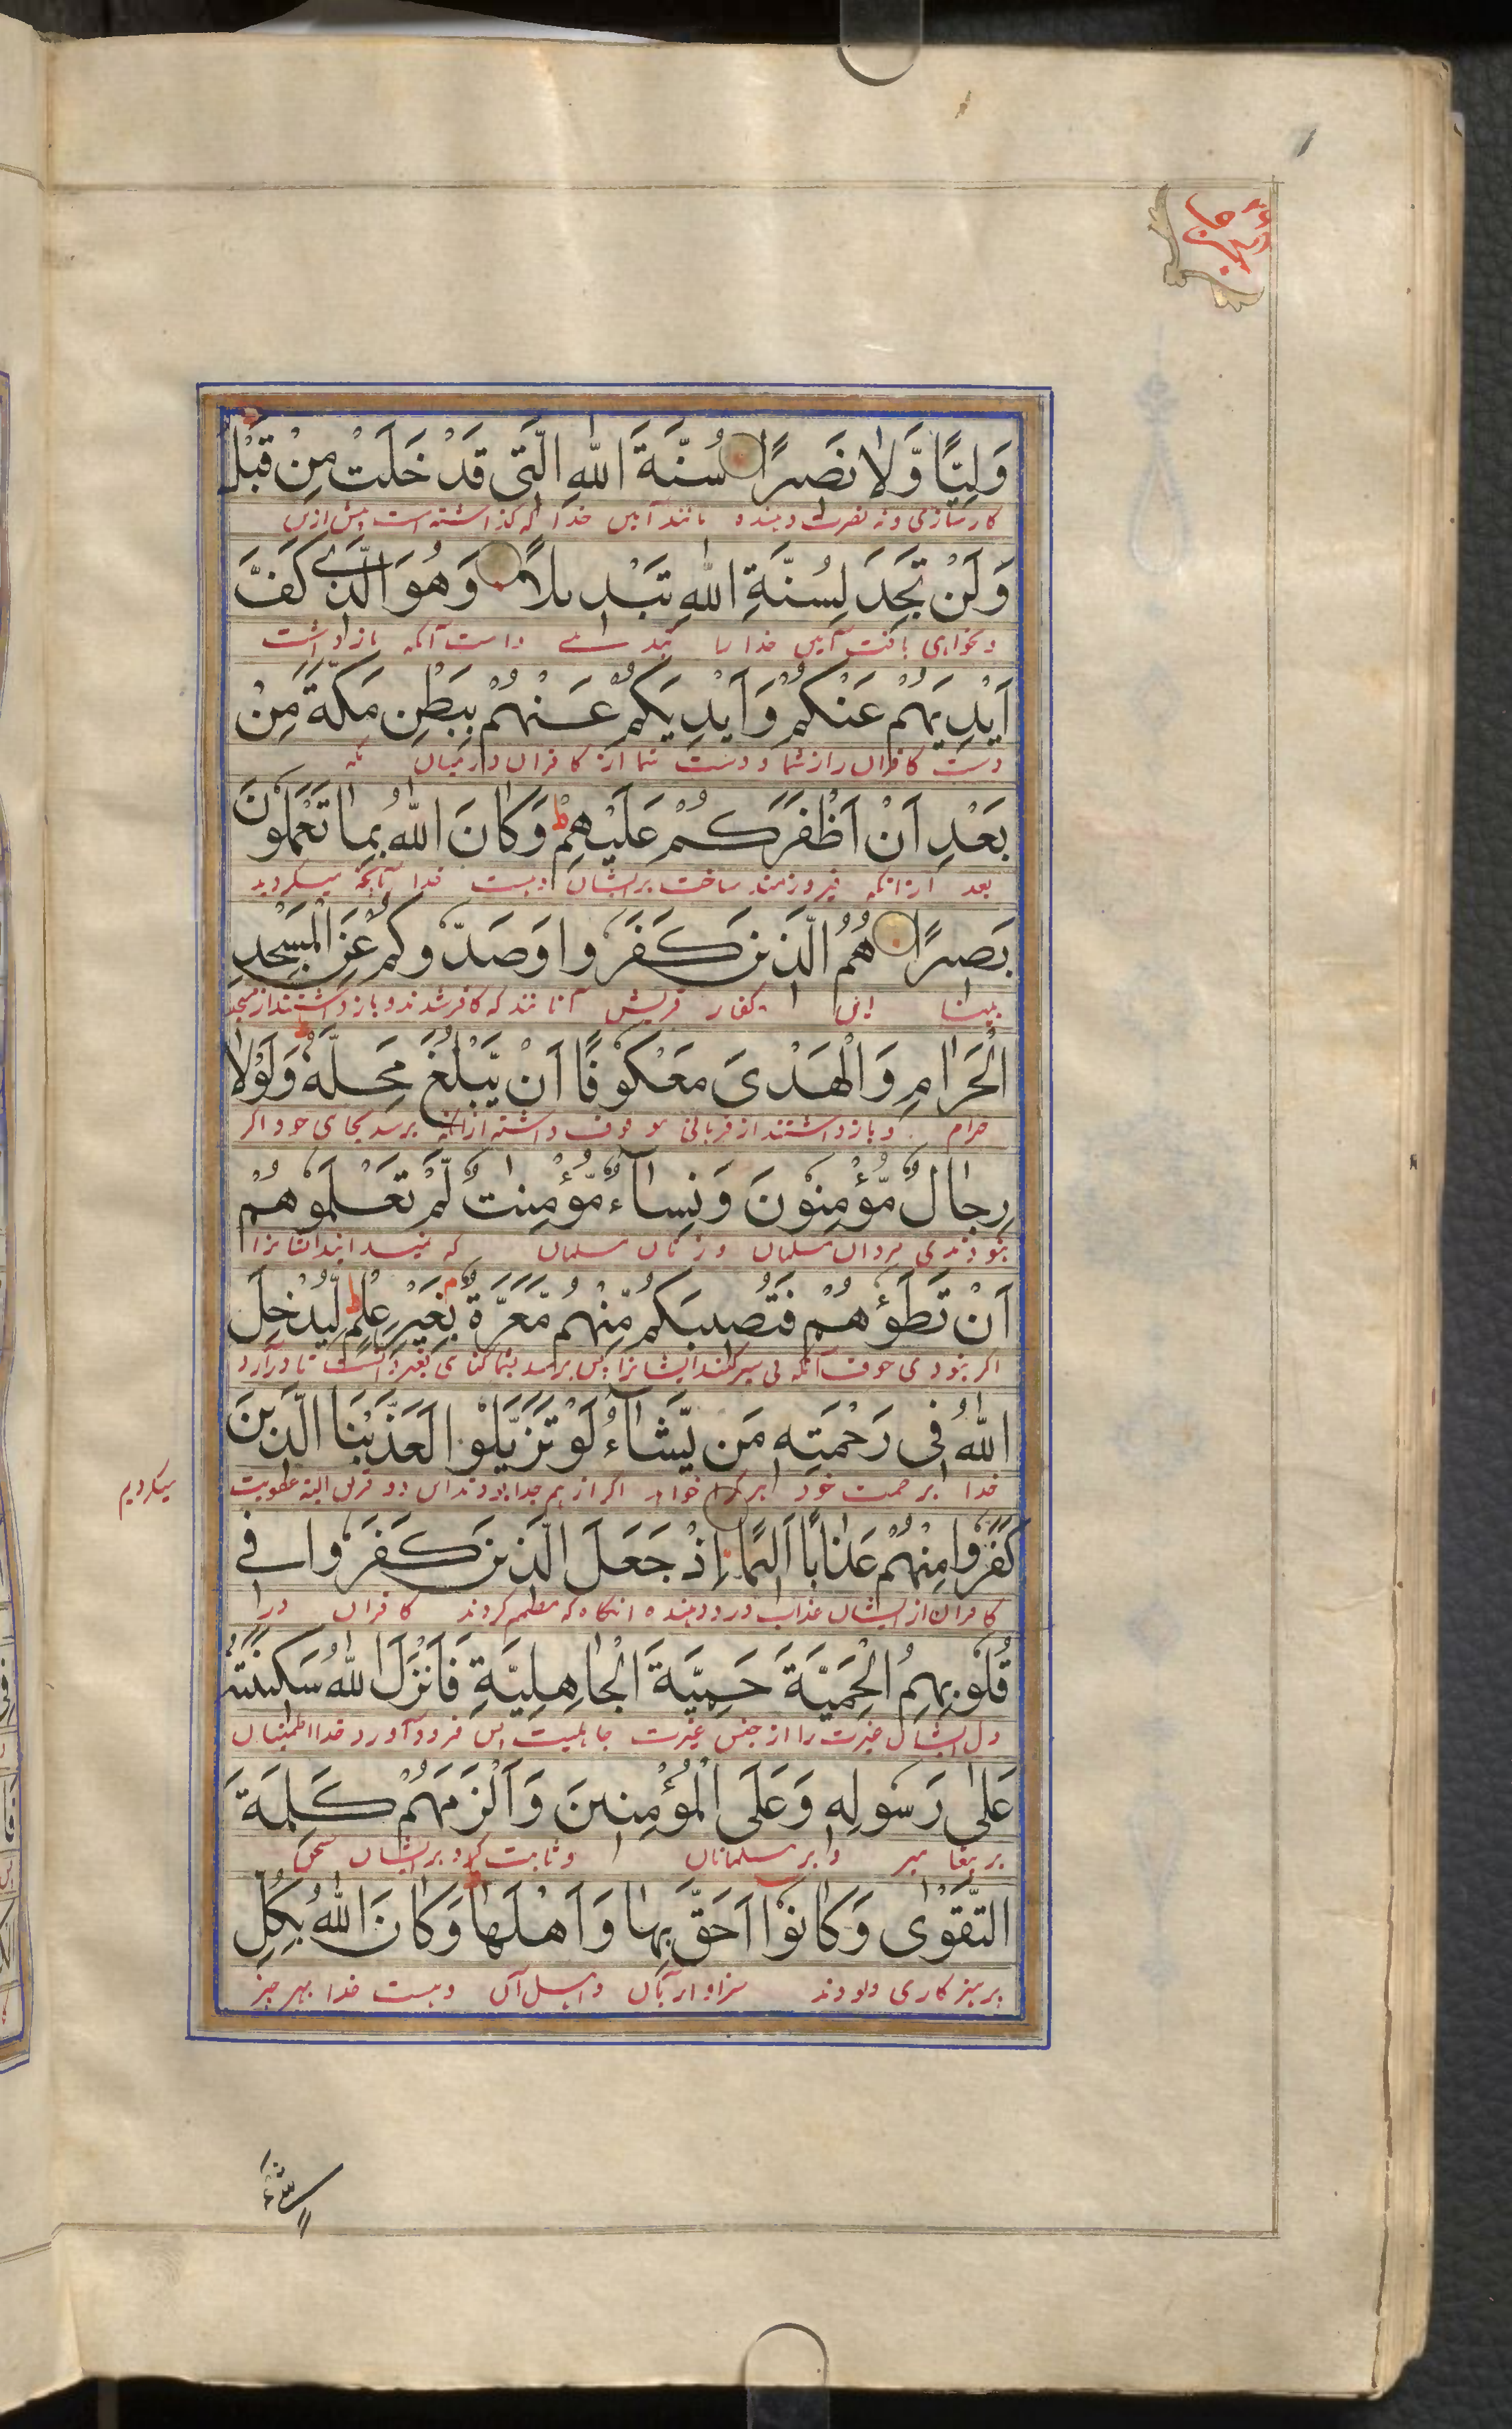 وَلِيًّا وَّلَا نَصِيرًا سُنَّةَ اللّٰهِ الَّتِي قَدْ خَلَتْ مِنْ قَبْلُ
کارسازی و نه نصرت دهنده مانند آیین خدا که گذاشته است پیش ازین
وَلَنْ تَجِدَ لِسُنَّةِ اللّٰهِ تَبْدِيلًا وَهُوَ الَّذِي كَفَّ
و نخواهی یافت آیین خدا را تبدیلے و اوست آنکه بازداشت
اَيْدِيَهُمْ عَنْكُمْ وَاَيْدِيَكُمْ عَنْهُمْ بِبَطْنِ مَكَّةَ مِنْ
دست کافران را از شما و دست شما از کافران در میان مکه
بَعْدِ اَنْ اَظْفَرَكُمْ عَلَيْهِمْ ط وَكَانَ اللّٰهُ بِمَا تَعْمَلُونَ
بعد ازانکه فیروزمند ساخت بر ایشان و هست خدا بآنچه میکردید
بَصِيرًا هُمُ الَّذِينَ كَفَرُوا وَصَدُّوكُمْ عَنِ الْمَسْجِدِ
بینا این کفار قریش آنانند که کافر شدند و باز داشتند از مسجد
الْحَرَامِ وَالْهَدْيَ مَعْكُوفًا اَنْ يَّبْلُغَ مَحِلَّهُ ط وَلَوْلَا
حرام و باز داشتند از قربانی موقوف داشته ازانکه برسد بجای خود اگر
رِجَالٌ مُّؤْمِنُونَ وَنِسَآءٌ مُّؤْمِنٰتٌ لَّمْ تَعْلَمُوهُمْ
نبودندی مردان مسلمان و زنان مسلمان که نمیدانید ایشانرا
اَنْ تَطَـُٔوهُمْ فَتُصِيبَكُمْ مِّنْهُمْ مَّعَرَّةٌ م بِغَيْرِ عِلْمٍ ط لِيُدْخِلَ
اگر نبودی خوف آنکه پی سپر کنید ایشانرا پس برسد بشما گناهی بغیر دانست تا درآرد
اللّٰهُ فِي رَحْمَتِهِ مَن يَّشَآءُ لَوْ تَزَيَّلُوا لَعَذَّبْنَا الَّذِينَ
خدا برحمت خود هر کرا خواهد اگر از هم جدا بودند این دو فریق البته عقوبت
میکردیم
كَفَرُوا مِنْهُمْ عَذَابًا اَلِيمًا اِذْ جَعَلَ الَّذِينَ كَفَرُوا فِي
کافران از ایشان عذاب درد دهنده آنگاه که مصمم کردند کافران در
قُلُوبِهِمُ الْحَمِيَّةَ حَمِيَّةَ الْجَاهِلِيَّةِ فَاَنْزَلَ اللّٰهُ سَكِينَتَهُ
دل ایشان غیرت را از جنس غیرت جاهلیت پس فرود آورد خدا اطمینان
عَلٰى رَسُولِهِ وَعَلَى الْمُؤْمِنِينَ وَاَلْزَمَهُمْ كَلِمَةَ
بر پیغامبر و بر مسلمانان و ثابت کرد بر ایشان سخن
التَّقْوٰى وَكَانُوا اَحَقَّ بِهَا وَاَهْلَهَا ط وَكَانَ اللّٰهُ بِكُلِّ
پرهیزکاری و بودند سزاوار بآن و اهل آن و هست خدا بهر چیز